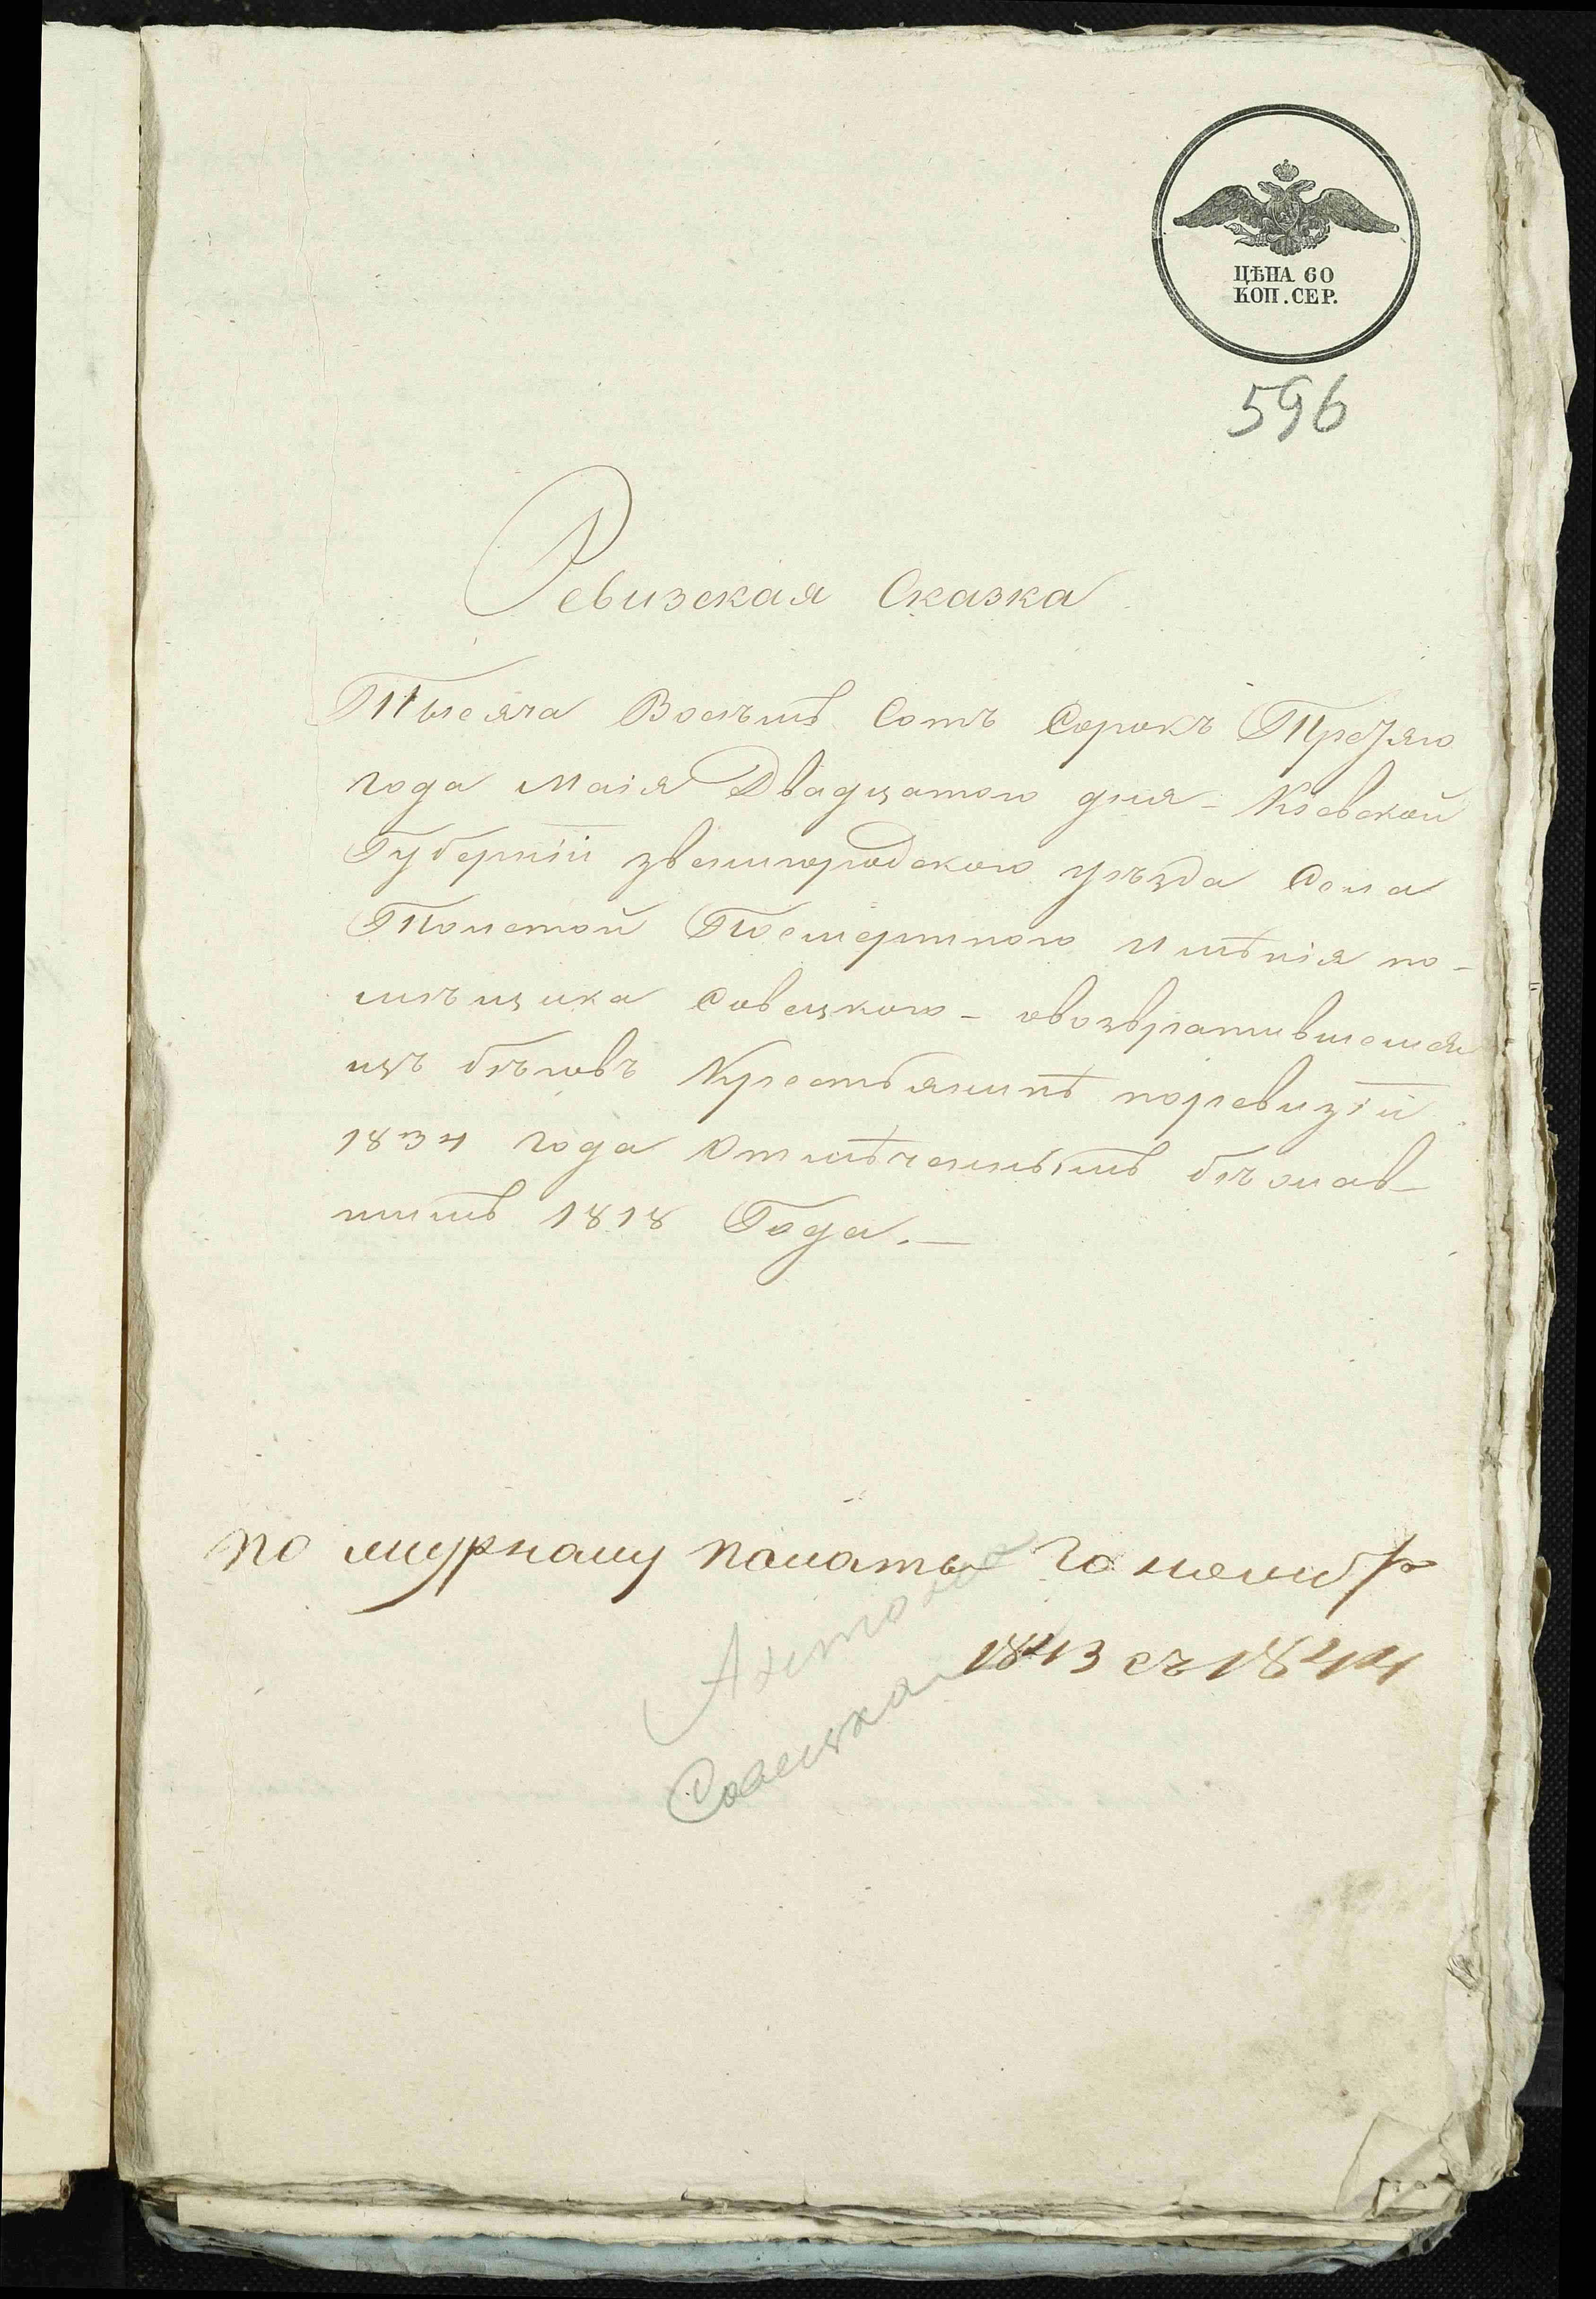 ЦѢНА 60
КОП. СЕР.
596
Ревизская Сказка
Тысяча Восемь Сотъ Сорокъ Третяго
года Маія Двадцатого дня - Кіевской
Губерніи звенигородского уѣзда Села
Толстой Посмертного Имѣнія по-
мѣщика Совецкого - овозвратившемся
изъ бѣговъ Крестьянинѣ поревизіи
1834 года Отмѣченнымъ бѣжав-
шимъ 1818 Года. —
по журналу палаты
1843 съ 1844
Антона
Совецкаго